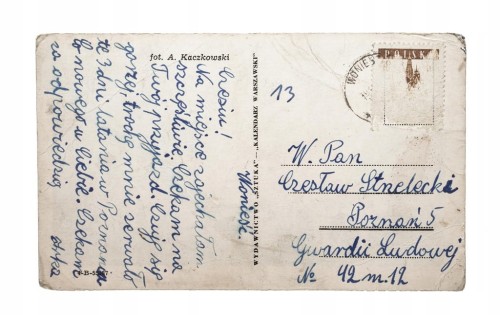 fot. A. Kaczkowski
Czesiu!
Na miejsce zajechałam
szczęśliwie. Czekam na
Twój przyjazd. Czuję się
gorzej, trochę mnie zerwały
te 3 dni latania w Poznaniu
Co nowego u Ciebie. Czekam
na odpowiedzią
Wonieść.
WYDAWNICTWO „SZTUKA" — „KALENDARZ WARSZAWSKI"
WONIEŚ
13
W. Pan
Czesław Strzelecki
Poznań 5
Gwardii Ludowej
№ 42 m. 12